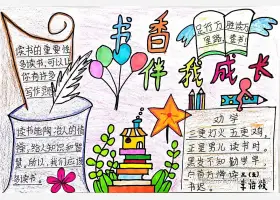 书香
伴我成长
读书的重要性
多读书,可以让
你有许多
写作灵感
行万
胜读万
里路
卷书
读书能陶冶人的情
操,给人知识和智
慧。所以,我们应该
多读书。
劝学
三更灯火五更鸡,
正是男儿读书时。
黑发不知勤学早,
白首方悔读
书迟。